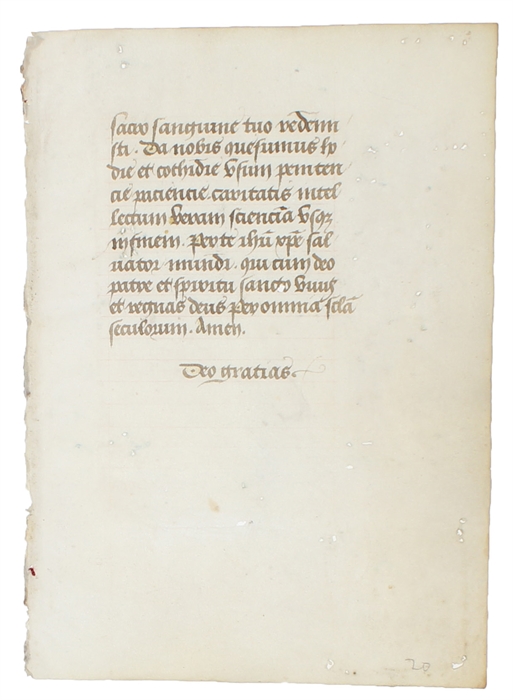 sacro sanguine tuo redemi
sti. Da nobis quesumus ho
die et cothidie vsum peniten
cie paciencie caritatis intel
lectum veram scienciā vsqꝫ
in finem. Per te ihū xp̄e sal
uator mundi. qui cum deo
patre et spiritu sancto viuis
et regnas deus per omnia sclā
seculorum. Amen.
Deo gratias.